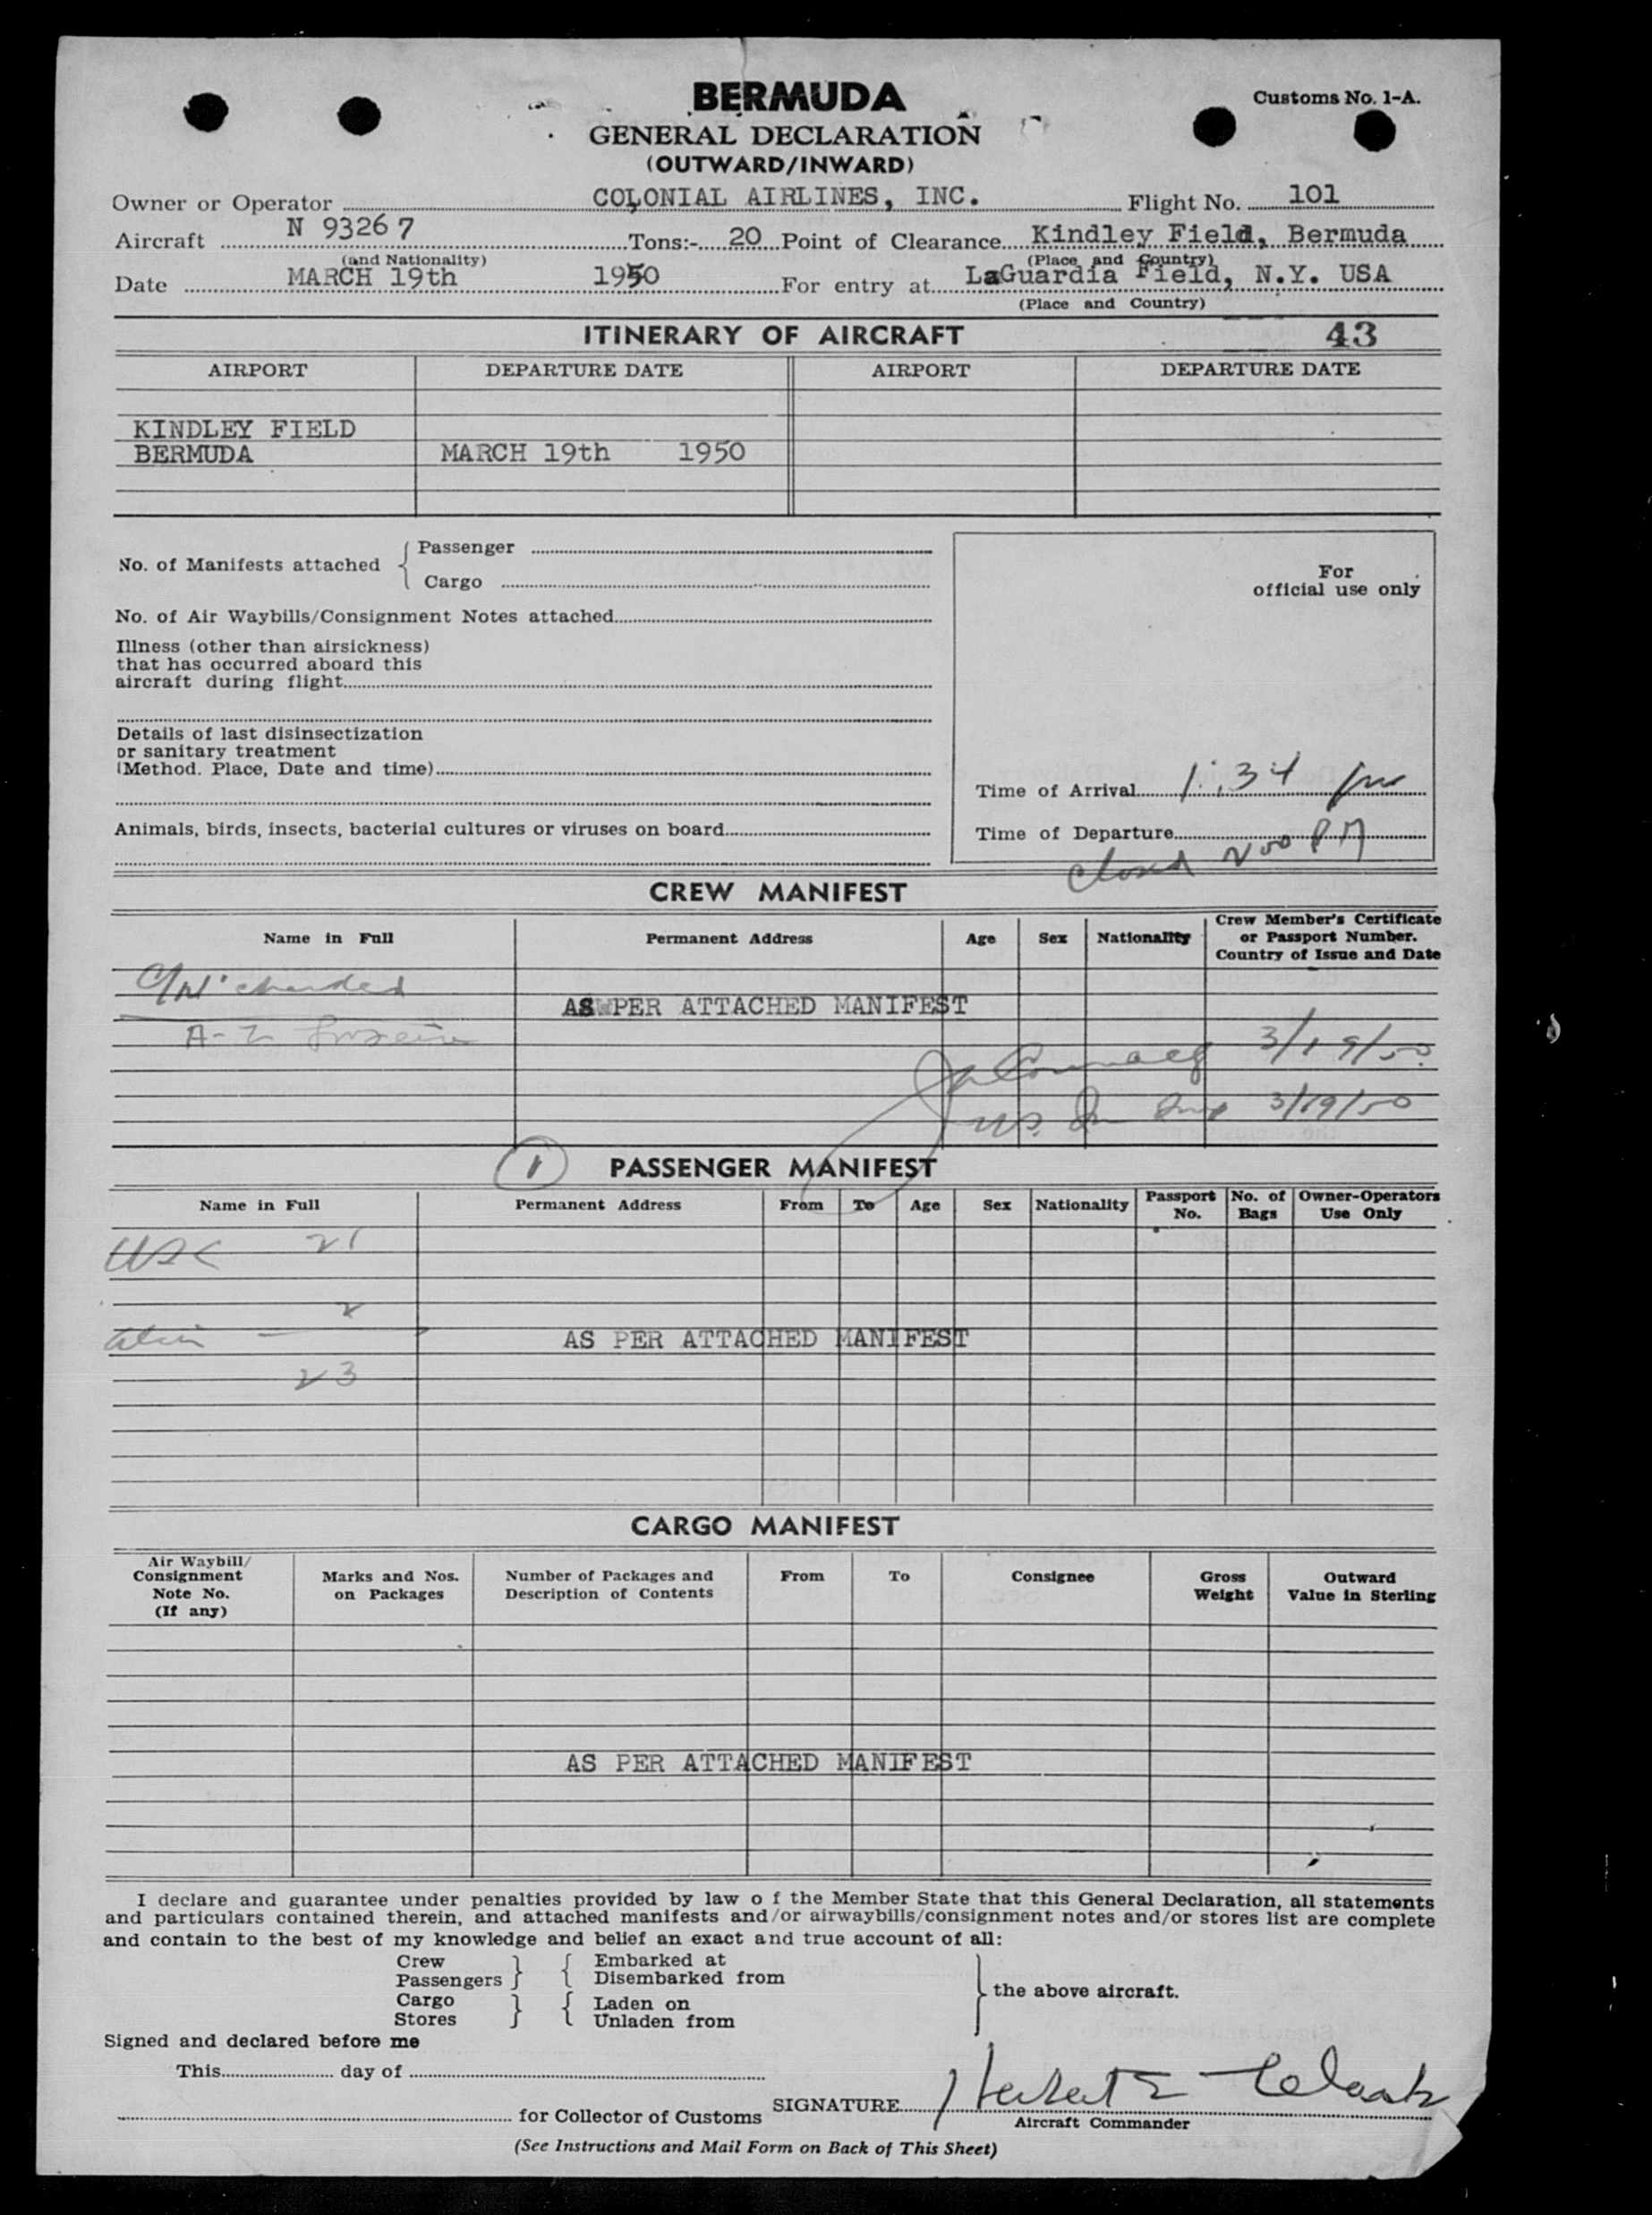 BERMUDA
Customs No. 1-A.
GENERAL DECLARATION
(OUTWARD/INWARD)
Owner or Operator COLONIAL AIRLINES, INC. Flight No. 101
Aircraft N 93267 Tons:- 20 Point of Clearance Kindley Field, Bermuda
(and Nationality) (Place and Country)
Date MARCH 19th 1950 For entry at LaGuardia Field, N.Y. USA
(Place and Country)
ITINERARY OF AIRCRAFT 43
AIRPORT DEPARTURE DATE AIRPORT DEPARTURE DATE
KINDLEY FIELD
BERMUDA MARCH 19th 1950
No. of Manifests attached
Passenger
Cargo
For
official use only
No. of Air Waybills/Consignment Notes attached
Illness (other than airsickness)
that has occurred aboard this
aircraft during flight
Details of last disinsectization
or sanitary treatment
(Method. Place, Date and time)
Time of Arrival 1:34 pm
Animals, birds, insects, bacterial cultures or viruses on board
Time of Departure
Closed 200 PM
CREW MANIFEST
Name in Full Permanent Address Age Sex Nationality Crew Member's Certificate
or Passport Number.
Country of Issue and Date
AS PER ATTACHED MANIFEST
3/19/50
3/19/50
1 PASSENGER MANIFEST
Name in Full Permanent Address From To Age Sex Nationality Passport No. No. of Bags Owner-Operators Use Only
USC 21
2
Alien — AS PER ATTACHED MANIFEST
23
CARGO MANIFEST
Air Waybill/
Consignment
Note No.
(If any)
Marks and Nos.
on Packages
Number of Packages and
Description of Contents
From To Consignee
Gross
Weight
Outward
Value in Sterling
AS PER ATTACHED MANIFEST
I declare and guarantee under penalties provided by law o f the Member State that this General Declaration, all statements
and particulars contained therein, and attached manifests and/or airwaybills/consignment notes and/or stores list are complete
and contain to the best of my knowledge and belief an exact and true account of all:
Crew Embarked at
Passengers Disembarked from
the above aircraft.
Cargo Laden on
Stores Unladen from
Signed and declared before me
This day of
for Collector of Customs SIGNATURE Herbert
Aircraft Commander
(See Instructions and Mail Form on Back of This Sheet)